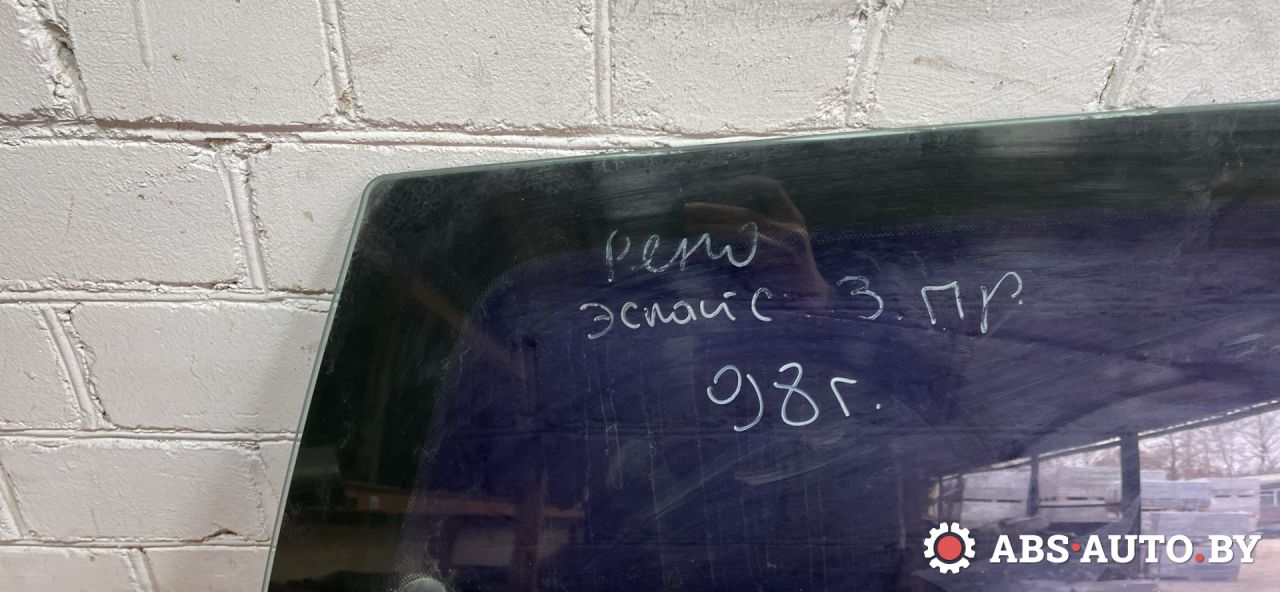 Рено
эспайс 3. Пр.
98г.
ABS·AUTO.BY